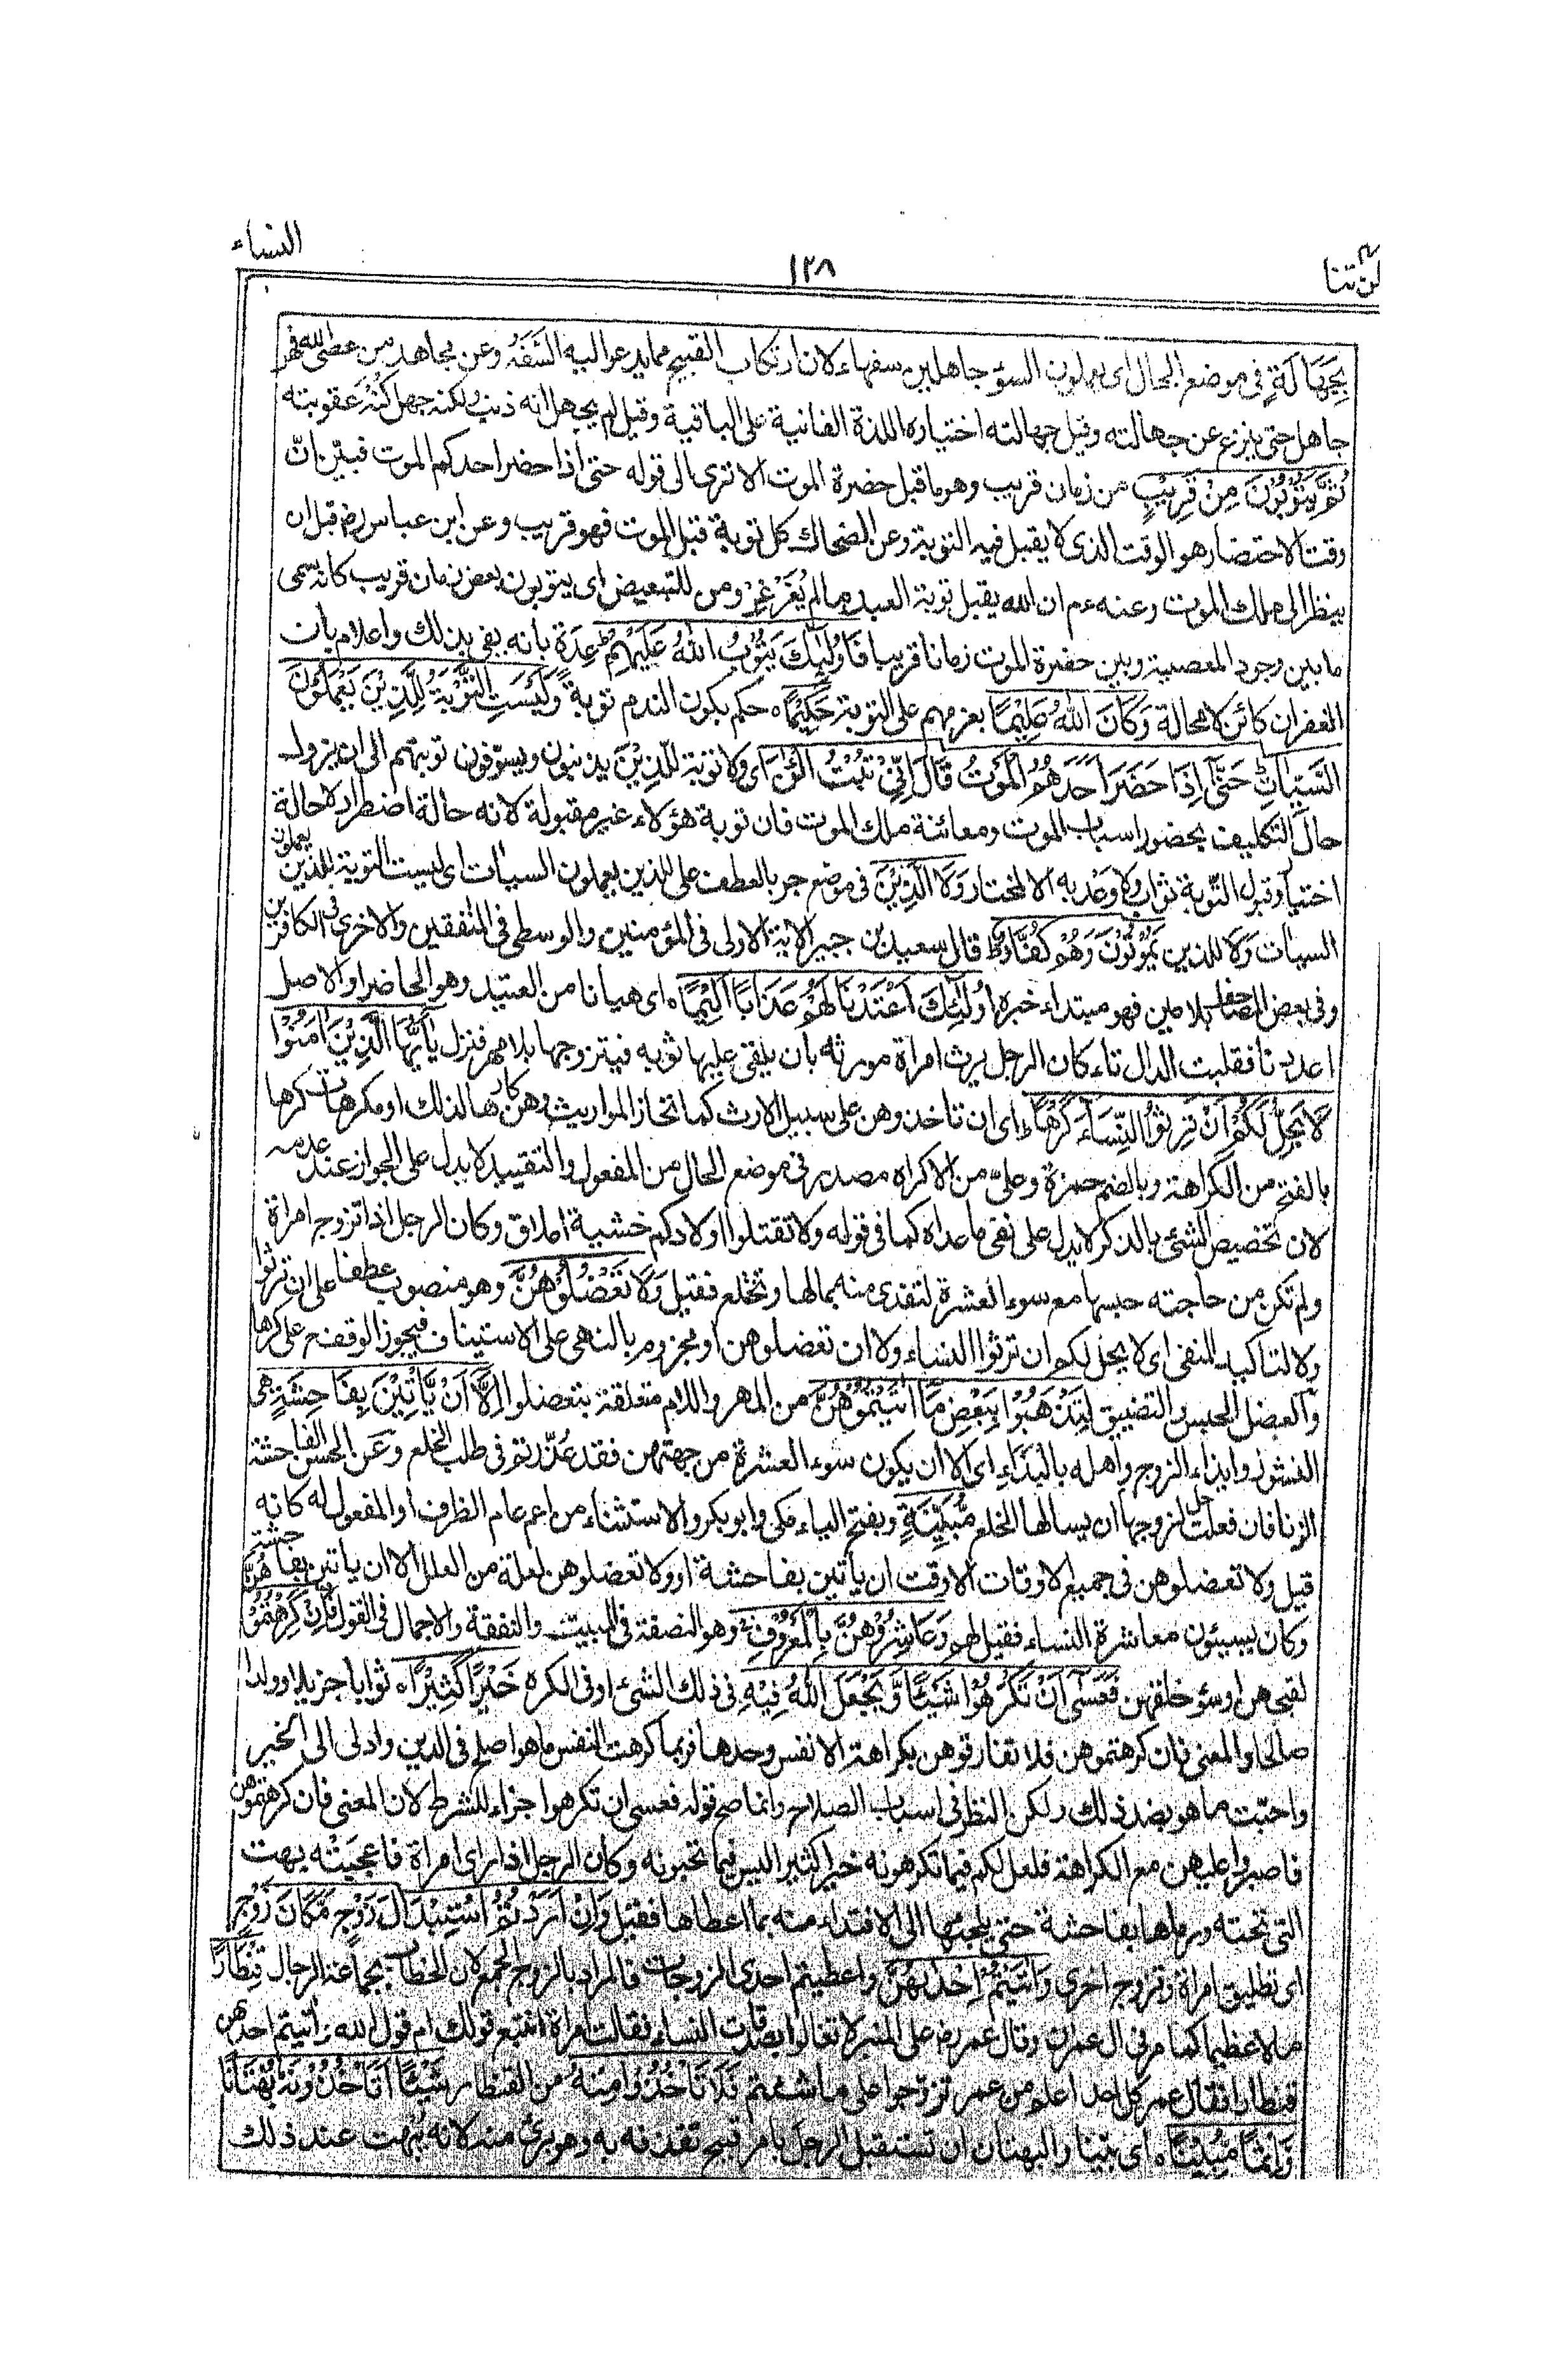 النساء
١٢٨
لن تنا ٤
بِجَهَالَةٍ فى موضع الحال اى يعملون السوء جاهلين سفهاء لان ارتكاب القبيح مما يدعو اليه السَّفَهُ وعن مجاهد من عصى الله فهو
جاهل حتى ينزع عن جهالته وقيل جهالته اختياره اللذة الفانية على الباقية وقيل لم يجهل انه ذنب ولكنه جهل كُنْهَ عقوبته
ثُمَّ يَتُوْبُوْنَ مِنْ قَرِيْبٍ من زمان قريب وهو ما قبل حضرة الموت الا ترى الى قوله حتى اذا حضر احدكم الموت فبيّن انّ
وقت الاحتضار هو الوقت الذى لا يقبل فيه التوبة وعن الضحاك كل توبة قبل الموت فهو قريب وعن ابن عباس رض قبل ان
ينظر الى ملك الموت وعنه ءم ان الله يقبل توبة العبد ما لم يُغَرْغِرْ ومن للتبعيض اى يتوبون بعض زمان قريب كانه سمى
ما بين وجود المعصية وبين حضرة الموت زمانا قريبا فَاُولٰٓئِكَ يَتُوْبُ اللّٰهُ عَلَيْهِمْ ط عِدَة بانه يفى بذلك واعلام بان
الغفران كائن لا محالة وَكَانَ اللّٰهُ عَلِيْمًا بعزمهم على التوبة حَكِيْمًا ه حكم بكون الندم توبةً وَلَيْسَتِ التَّوْبَةُ لِلَّذِيْنَ يَعْمَلُوْنَ
السَّيِّاٰتِ ج حَتّٰٓى اِذَا حَضَرَ اَحَدَهُمُ الْمَوْتُ قَالَ اِنِّىْ تُبْتُ الْئٰنَ اى ولا توبة للذين يذنبون ويسوّفون توبتهم الى ان يزول
حال التكليف بحضور اسباب الموت ومعائنة ملك الموت فان توبة هؤلاء غير مقبولة لانه حالة اضطرار لا حالة
اختيار وقبول التّوبة ثواب ولا وعد به الا لمختار وَلَا الَّذِيْنَ فى موضع جر بالعطف على للذين يعملون السيئات اى ليست التوبة للذين يعملون
السيئات ولا للذين يَمُوْتُوْنَ وَهُمْ كُفَّارٌ ط قال سعيد بن جبير الاية الاولى فى المؤمنين والوسطى فى المنفقين والاخرى فى الكافرين
وفى بعض المصاحف بلامين فهو مبتداء خبره اُولٰٓئِكَ اَعْتَدْنَا لَهُمْ عَذَابًا اَلِيْمًا ه اى هيانا من العتيد وهو الحاضر او الاصل
اعددنا فقلبت الدال تاء كان الرجل يرث امراة مورثه بان يلقى عليها ثوبه فيتزوجها بلا مهر فنزل يٰٓاَيُّهَا الَّذِيْنَ اٰمَنُوْا
لَا يَحِلُّ لَكُمْ اَنْ تَرِثُوا النِّسَآءَ كَرْهًا ط اى ان تاخذوهن على سبيل الارث كما تحاز المواريث وهن كارهات لذلك او مكرهات كرها
بالفتح من الكراهة وبالضم حمزة وعلىّ من الاكراه مصدر فى موضع الحال من المفعول والتقييد لا يدل على الجواز عند عدمه
لان تخصيص الشئ بالذكر لا يدل على نفى ما عداه كما فى قوله ولا تقتلوا اولادكم خشية املاق وكان الرجل اذا تزوج امراة
ولم تكن من حاجته حبسها مع سوء العشرة لتفتدى منه بمالها وتختلع فقيل وَلَا تَعْضُلُوْهُنَّ وهو منصوب عطفا على ان ترثوا
ولا لتاكيد النفى اى لا يحل لكم ان ترثوا النساء ولا ان تعضلوهن او مجزوم بالنهى على الاستيناف فيجوز الوقف على كرها
والعضل الحبس والتضييق لِتَذْهَبُوْا بِبَعْضِ مَآ اٰتَيْتُمُوْهُنَّ من المهر واللام متعلقة بتعضلوا اِلَّآ اَنْ يَّاْتِيْنَ بِفَاحِشَةٍ هى
النشوز وايذاء الزوج واهله بالبَذَاءِ اى الا ان يكون سوء العشرة من جهتهن فقد عُذِّرتم فى طلب الخلع وعن الحسن الفاحشة
الزنا فان فعلت حل لزوجها ان يسالها الخلع مُّبَيِّنَةٍ وبفتح الياء مكى وابو بكر والاستثناء من اعم عام الظرف او المفعول له كانه
قيل ولا تعضلوهن فى جميع الاوقات الا وقت ان ياتين بفاحشة او ولا تعضلوهن لعلة من العلل الا ان ياتين بفاحشة
وكان يسيئون معاشرة النساء فقيل لهم وَعَاشِرُوْهُنَّ بِالْمَعْرُوْفِ ج وهو النصفة فى المبيت والنفقة والاجمال فى القول فَاِنْ كَرِهْتُمُوْهُنَّ
لقبحهن او سوء خلقهن فَعَسٰٓى اَنْ تَكْرَهُوْا شَيْئًا وَّيَجْعَلَ اللّٰهُ فِيْهِ فى ذلك الشئ او فى الكره خَيْرًا كَثِيْرًا ه ثوابا جزيلا او ولدا
صالحا والمعنى فان كرهتموهن فلا تفارقوهن بكراهة الانفس وحدها فربما كرهت النفس ما هو اصلح فى الدين وادنى الى الخير
واحبّت ما هو بضد ذلك ولكن النظر فى اسباب الصلاح وانما صح قوله فعسى ان تكرهوا جزاء للشرط لان المعنى فان كرهتموهن
فاصبروا عليهن مع الكراهة فلعل لكم فيما تكرهونه خيرا كثيرا ليس فيما تحبونه وكان الرجل اذا راى امراة فاعجبته بهت
التى تحته ورماها بفاحشة حتى يلجئها الى الافتداء منه بما اعطاها فقيل وَاِنْ اَرَدْتُّمُ اسْتِبْدَالَ زَوْجٍ مَّكَانَ زَوْجٍ
اى تطليق امراة وتزوج اخرى وَاٰتَيْتُمْ اِحْدٰىهُنَّ واعطيتم احدى الزوجات فالمراد بالزوج الجمع لان الخطاب بجماعة الرجال قِنْطَارًا
مالا عظيما كما مر فى ال عمران وقال عمر رض على المنبر لا تغالوا بصدقات النساء فقالت امراة انتبع قولك ام قول الله واتيتم احدهن
قنطارا فقال عمر كل احد اعلم من عمر تزوجوا على ما شئتم فَلَا تَاْخُذُوْا مِنْهُ من القنطار شَيْئًا اَتَاْخُذُوْنَهٗ بُهْتَانًا
وَّاِثْمًا مُّبِيْنًا ه اى بيّنا والبهتان ان تستقبل الرجل بامر قبيح تقذفه به وهو برئ منه لانه يبهت عند ذلك